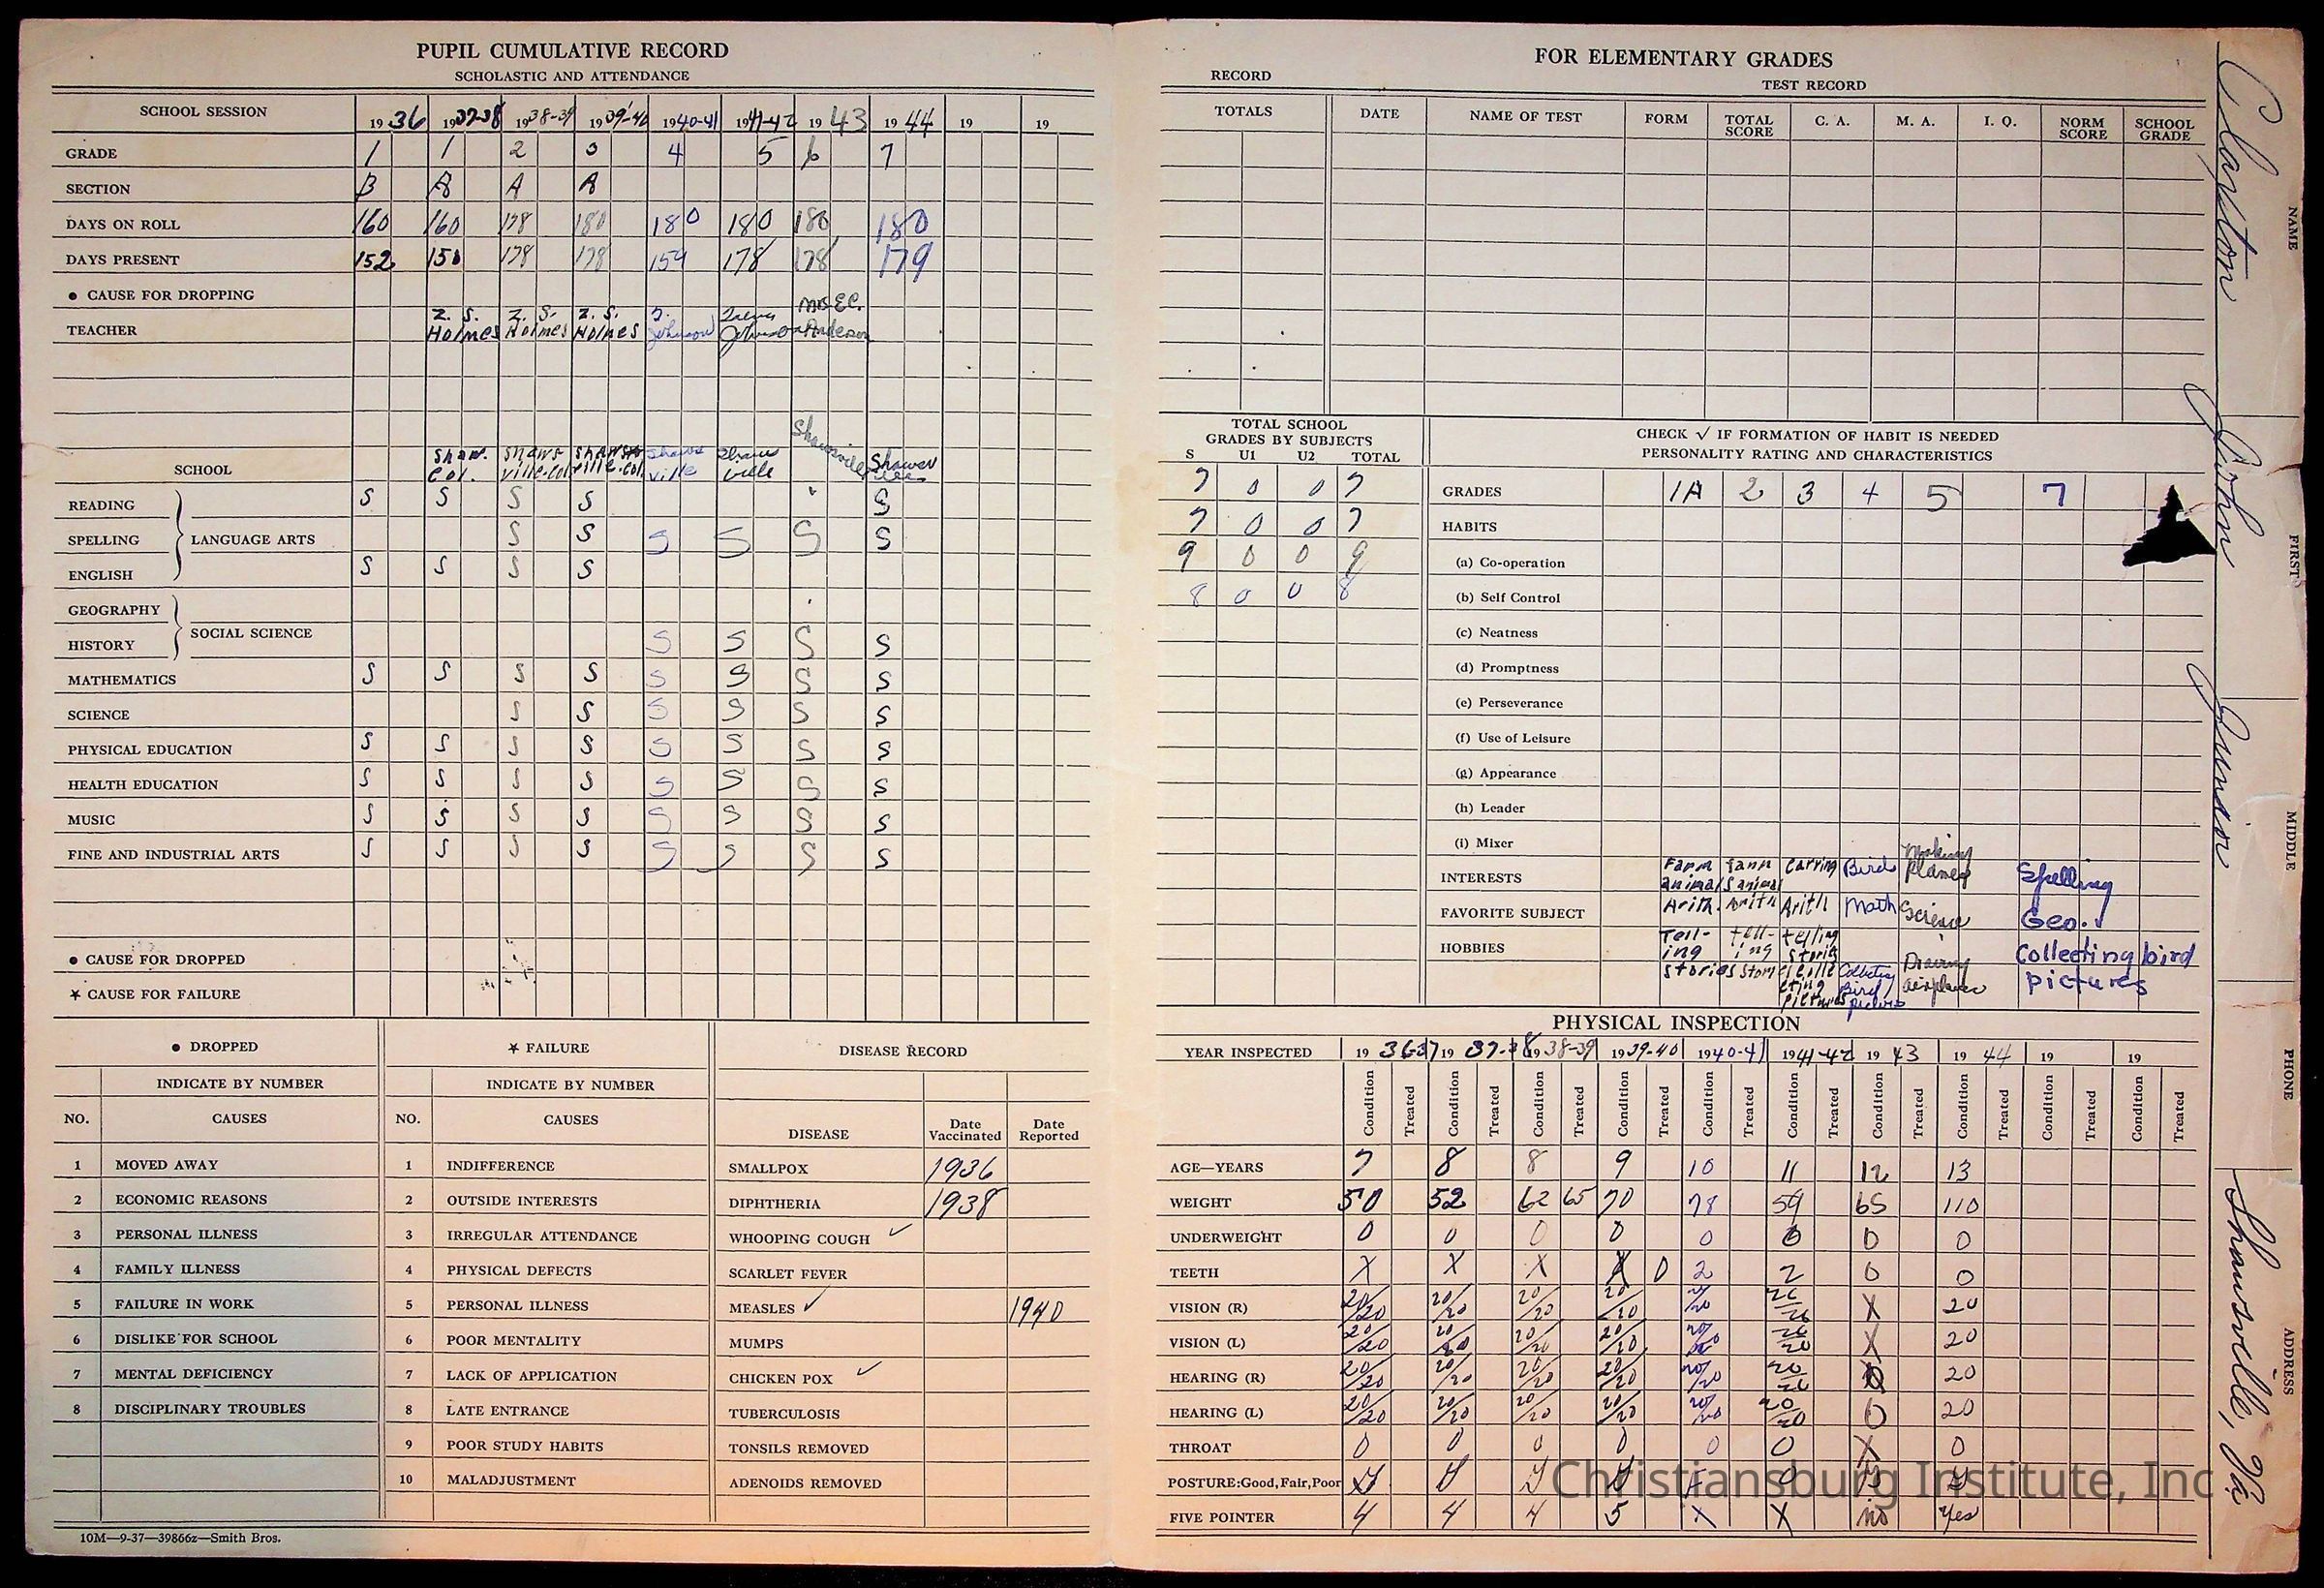 PUPIL CUMULATIVE RECORD
SCHOLASTIC AND ATTENDANCE
SCHOOL SESSION 1936 1937-38 1938-39 1939-40 1940-41 1941-42 1943 1944 19 19
GRADE 1 1 2 3 4 5 6 7
SECTION B A A A
DAYS ON ROLL 160 160 178 180 180 180 180 180
DAYS PRESENT 152 150 178 178 159 178 178 179
● CAUSE FOR DROPPING
TEACHER Z. S. Holmes Z. S. Holmes Z. S. Holmes Johnson Johnson Mrs E.C. Anderson
SCHOOL Shaw. Col. Shawsville-Col. Shawsville-Col. Shawsville Shawsville Shawsville Shawsville
READING S S S S S
SPELLING LANGUAGE ARTS S S S S S S
ENGLISH S S S S
GEOGRAPHY
HISTORY SOCIAL SCIENCE S S S S
MATHEMATICS S S S S S S S S
SCIENCE S S S S S S
PHYSICAL EDUCATION S S S S S S S S
HEALTH EDUCATION S S S S S S S S
MUSIC S S S S S S S S
FINE AND INDUSTRIAL ARTS S S S S S S S S
● CAUSE FOR DROPPED
★ CAUSE FOR FAILURE
● DROPPED
INDICATE BY NUMBER
NO. CAUSES
1 MOVED AWAY
2 ECONOMIC REASONS
3 PERSONAL ILLNESS
4 FAMILY ILLNESS
5 FAILURE IN WORK
6 DISLIKE FOR SCHOOL
7 MENTAL DEFICIENCY
8 DISCIPLINARY TROUBLES
★ FAILURE
INDICATE BY NUMBER
NO. CAUSES
1 INDIFFERENCE
2 OUTSIDE INTERESTS
3 IRREGULAR ATTENDANCE
4 PHYSICAL DEFECTS
5 PERSONAL ILLNESS
6 POOR MENTALITY
7 LACK OF APPLICATION
8 LATE ENTRANCE
9 POOR STUDY HABITS
10 MALADJUSTMENT
DISEASE RECORD
DISEASE Date Vaccinated Date Reported
SMALLPOX 1936
DIPHTHERIA 1938
WHOOPING COUGH ✓
SCARLET FEVER
MEASLES ✓ 1940
MUMPS
CHICKEN POX ✓
TUBERCULOSIS
TONSILS REMOVED
ADENOIDS REMOVED
10M—9-37—39866z—Smith Bros.
FOR ELEMENTARY GRADES
RECORD TEST RECORD
TOTALS DATE NAME OF TEST FORM TOTAL SCORE C. A. M. A. I. Q. NORM SCORE SCHOOL GRADE
TOTAL SCHOOL
GRADES BY SUBJECTS
S U1 U2 TOTAL
7 0 0 7
7 0 0 7
9 0 0 9
8 0 0 8
CHECK √ IF FORMATION OF HABIT IS NEEDED
PERSONALITY RATING AND CHARACTERISTICS
GRADES 1A 2 3 4 5 7
HABITS
(a) Co-operation
(b) Self Control
(c) Neatness
(d) Promptness
(e) Perseverance
(f) Use of Leisure
(g) Appearance
(h) Leader
(i) Mixer
INTERESTS Farm animals Farm animal Carving Bird Making Planes Spelling
FAVORITE SUBJECT Arith. Arith Arith Math Science Geo.
HOBBIES Telling stories telling stories telling stories collecting pictures Collecting Bird pictures Drawing airplanes Collecting bird pictures
PHYSICAL INSPECTION
YEAR INSPECTED 1936-37 1937-38 1938-39 1939-40 1940-41 1941-42 1943 1944 19 19
Condition Treated Condition Treated Condition Treated Condition Treated Condition Treated Condition Treated Condition Treated Condition Treated Condition Treated Condition Treated
AGE—YEARS 7 8 8 9 10 11 12 13
WEIGHT 50 52 62 65 70 78 59 65 110
UNDERWEIGHT 0 0 0 0 0 0 0 0
TEETH X X X X 0 2 2 0 0
VISION (R) 20/20 20/20 20/20 20/20 20/20 20/20 X 20
VISION (L) 20/20 20/20 20/20 20/20 20/20 X 20
HEARING (R) 20/20 20/20 20/20 20/20 20/20 20/20 20
HEARING (L) 20/20 20/20 20/20 20/20 20/20 20/20 0 20
THROAT 0 0 0 0 0 0 X 0
POSTURE:Good,Fair,Poor
FIVE POINTER 4 4 4 5 X X no Yes
Clayton John Junior
NAME FIRST MIDDLE PHONE ADDRESS
Shawsville, Va.
Christiansburg Institute, Inc